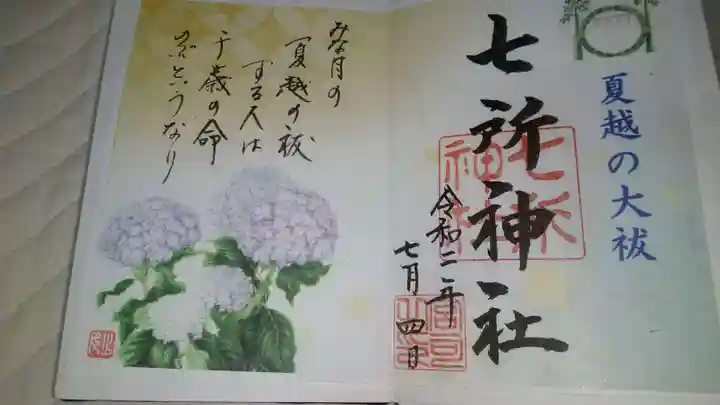 夏越の大祓
七所神社
令和二年
七月四日
みな月の
夏越の祓
する人は
千歳の命
のぶといふなり